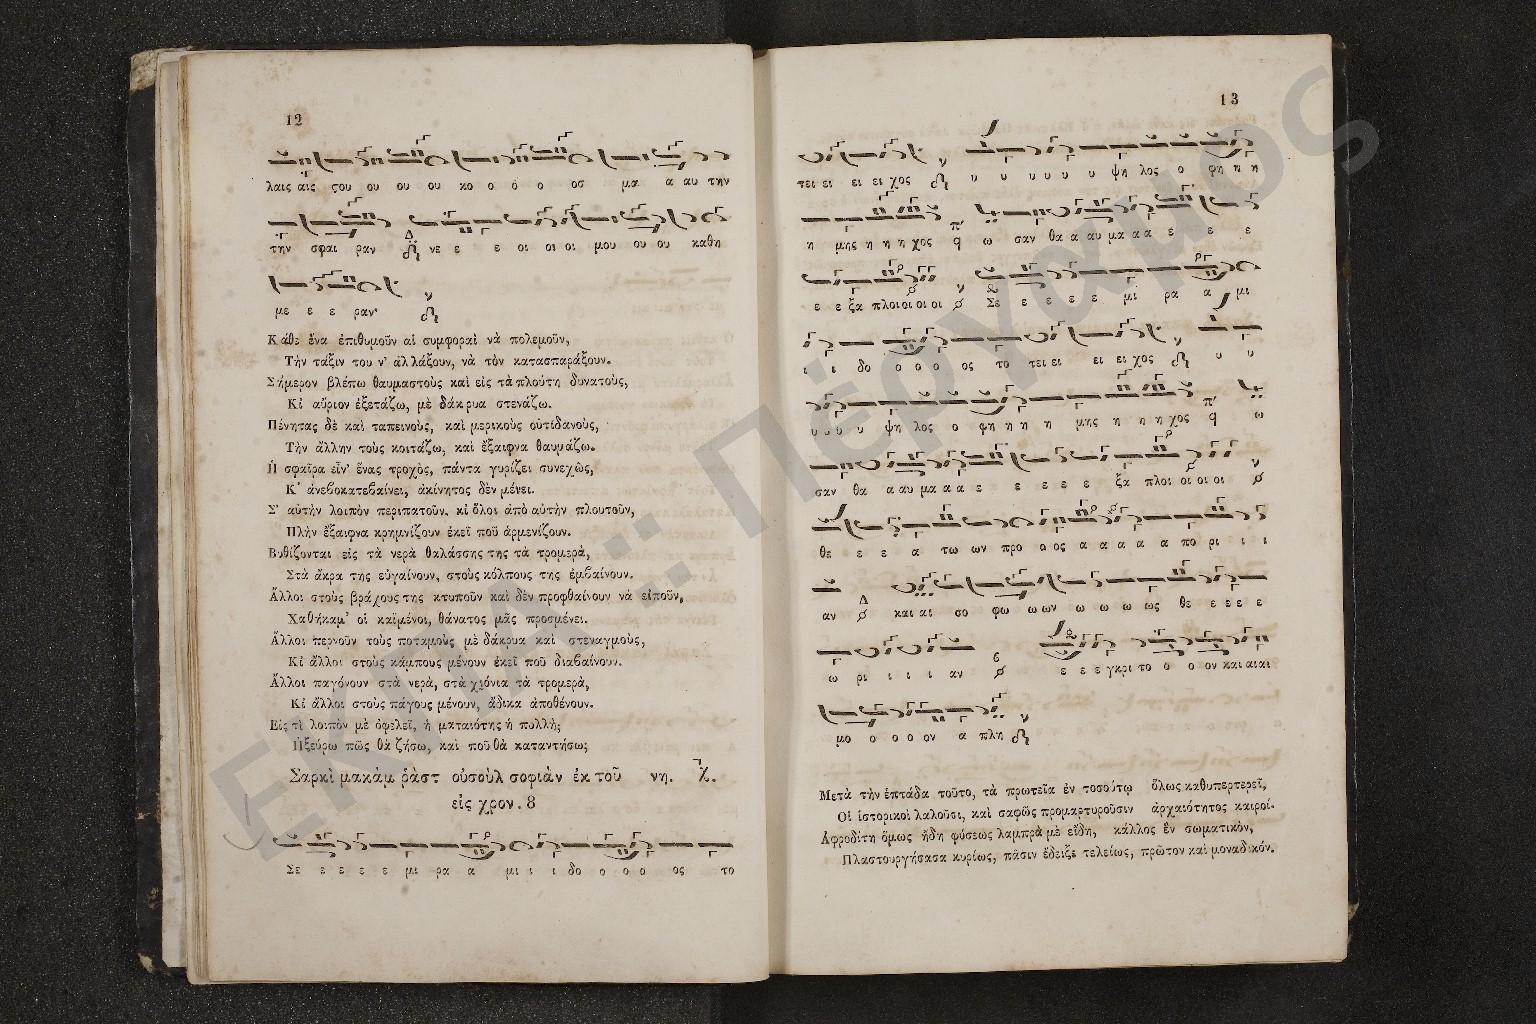 12
λαις αἰς ςου ου ου ου κο ο ό ο οσ μα α αυ την
τὴν σφαι ραν νε ε ε οι οι οι μου ου ου καθη
με ε ε ραν·
Κάθε ἕνα ἐπιθυμοῦν αἱ συμφοραὶ νὰ πολεμοῦν,
Τὴν τάξιν του ν' ἀλλάξουν, νὰ τὸν κατασπαράξουν.
Σήμερον βλέπω θαυμαστοὺς καὶ εἰς τὰ πλούτη δυνατοὺς,
Κἰ αὔριον ἐξετάζω, μὲ δάκρυα στενάζω.
Πένητας δὲ καὶ ταπεινοὺς, καὶ μερικοὺς οὐτιδανοὺς,
Τὴν ἄλλην τοὺς κοιτάζω, καὶ ἔξαιφνα θαυμάζω.
Ἡ σφαῖρα εἶν' ἕνας τροχὸς, πάντα γυρίζει συνεχῶς,
Κ' ἀνεβοκατεβαίνει, ἀκίνητος δὲν μένει.
Σ' αὐτὴν λοιπὸν περιπατοῦν, κἰ ὅλοι ἀπὸ αὐτὴν πλουτοῦν,
Πλὴν ἔξαιφνα κρημνίζουν ἐκεῖ ποῦ ἀρμενίζουν.
Βυθίζονται εἰς τὰ νερὰ θαλάσσης της τὰ τρομερὰ,
Στὰ ἄκρα της εὐγαίνουν, στοὺς κόλπους της ἐμβαίνουν.
Ἄλλοι στοὺς βράχους της κτυποῦν καὶ δὲν προφθαίνουν νὰ εἰποῦν,
Χαθήκαμ' οἱ καϊμένοι, θάνατος μᾶς προσμένει.
Ἄλλοι περνοῦν τοὺς ποταμοὺς μὲ δάκρυα καὶ στεναγμοὺς,
Κἰ ἄλλοι στοὺς κάμπους μένουν ἐκεῖ ποῦ διαβαίνουν.
Ἄλλοι παγόνουν στὰ νερὰ, στὰ χιόνια τὰ τρομερὰ,
Κἰ ἄλλοι στοὺς πάγους μένουν, ἄδικα ἀποθένουν.
Εἰς τὶ λοιπὸν μὲ ὀφελεῖ, ἡ ματαιότης ἡ πολλή;
Ἠξεύρω πῶς θὰ ζήσω, καὶ ποῦ θὰ καταντήσω;
Σαρκὶ μακὰμ ῥὰστ οὐσοὺλ σοφιὰν ἐκ τοῦ νη.
εἰς χρον. 8
Σε ε ε ε ε μι ρα α μι ι ι δο ο ο ο ος το
13
τει ει ει ει χος υ υ υ υ υ ψη λος ο φη η η
η μης η η η χος ω σαν θα α αυ μα α α ε ε ε
ε ε ξα πλοι οι οι οι Σε ε ε ε ε μι ρα α μι
ι ι δο ο ο ο ος το τει ει ει ει χος υ υ
υ υ υ ψη λος ο φη η η η μης η η η χος ω
σαν θα α αυ μα α α ε ε ε ε ε ξα πλοι οι οι οι
θε ε ε α τω ων προ ο ος α α α α α πο ρι ι ι
αν και αι σο φω ω ων ω ω ω ως θε ε ε ε ε
ω ρι ι ι ι αν ε ε ε γκρι το ο ο ον και αι αι
μο ο ο ο ον α πλη
Μετὰ τὴν ἑπτάδα τοῦτο, τὰ πρωτεῖα ἐν τοσούτῳ ὅλως καθυπερτερεῖ,
Οἱ ἱστορικοὶ λαλοῦσι, καὶ σαφῶς προμαρτυροῦσιν ἀρχαιότητος καιροί.
Ἀφροδίτη ὅμως ἤδη φύσεως λαμπρὰ μὲ εἴδη, κάλλος ἓν σωματικὸν,
Πλαστουργήσασα κυρίως, πᾶσιν ἔδειξε τελείως, πρῶτον καὶ μοναδικόν.